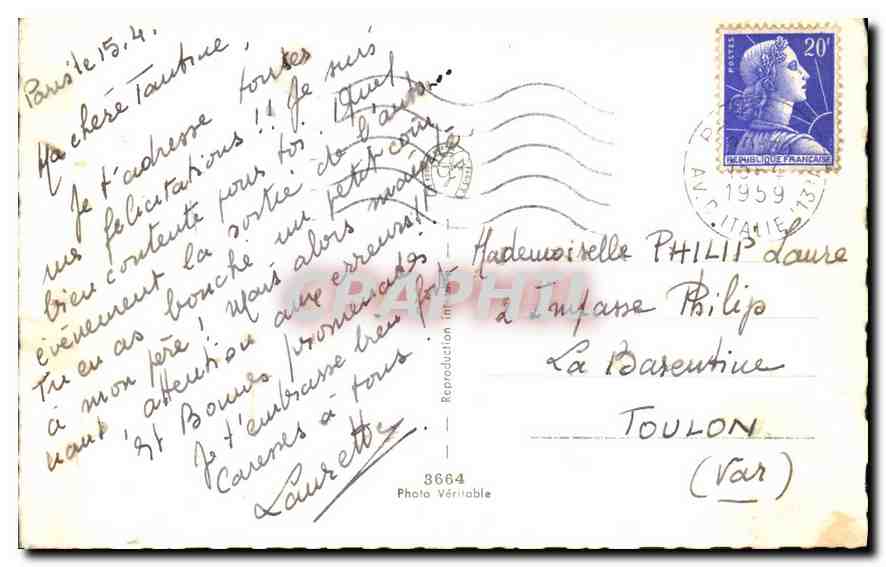 Paris le 15.4.
Ma chère Tantine,
Je t'adresse toutes
mes felicitations!! Je suis
bien contente pour toi. Quel
événement la sortie de l'auto...
Tu en as bouché un petit coin
à mon père! Mais alors mainte-
nant, attention aux erreurs!!
et Bonnes promenades
Je t'embrasse bien fort
Caresses à tous
Laurette
POSTES
20F
REPUBLIQUE FRANÇAISE
1959
AV. D'ITALIE (13)
Mademoiselle PHILIP Laure
2 Impasse Philip
La Barentine
TOULON
(Var)
CARPHTI
Reproduction inter
3664
Photo Véritable